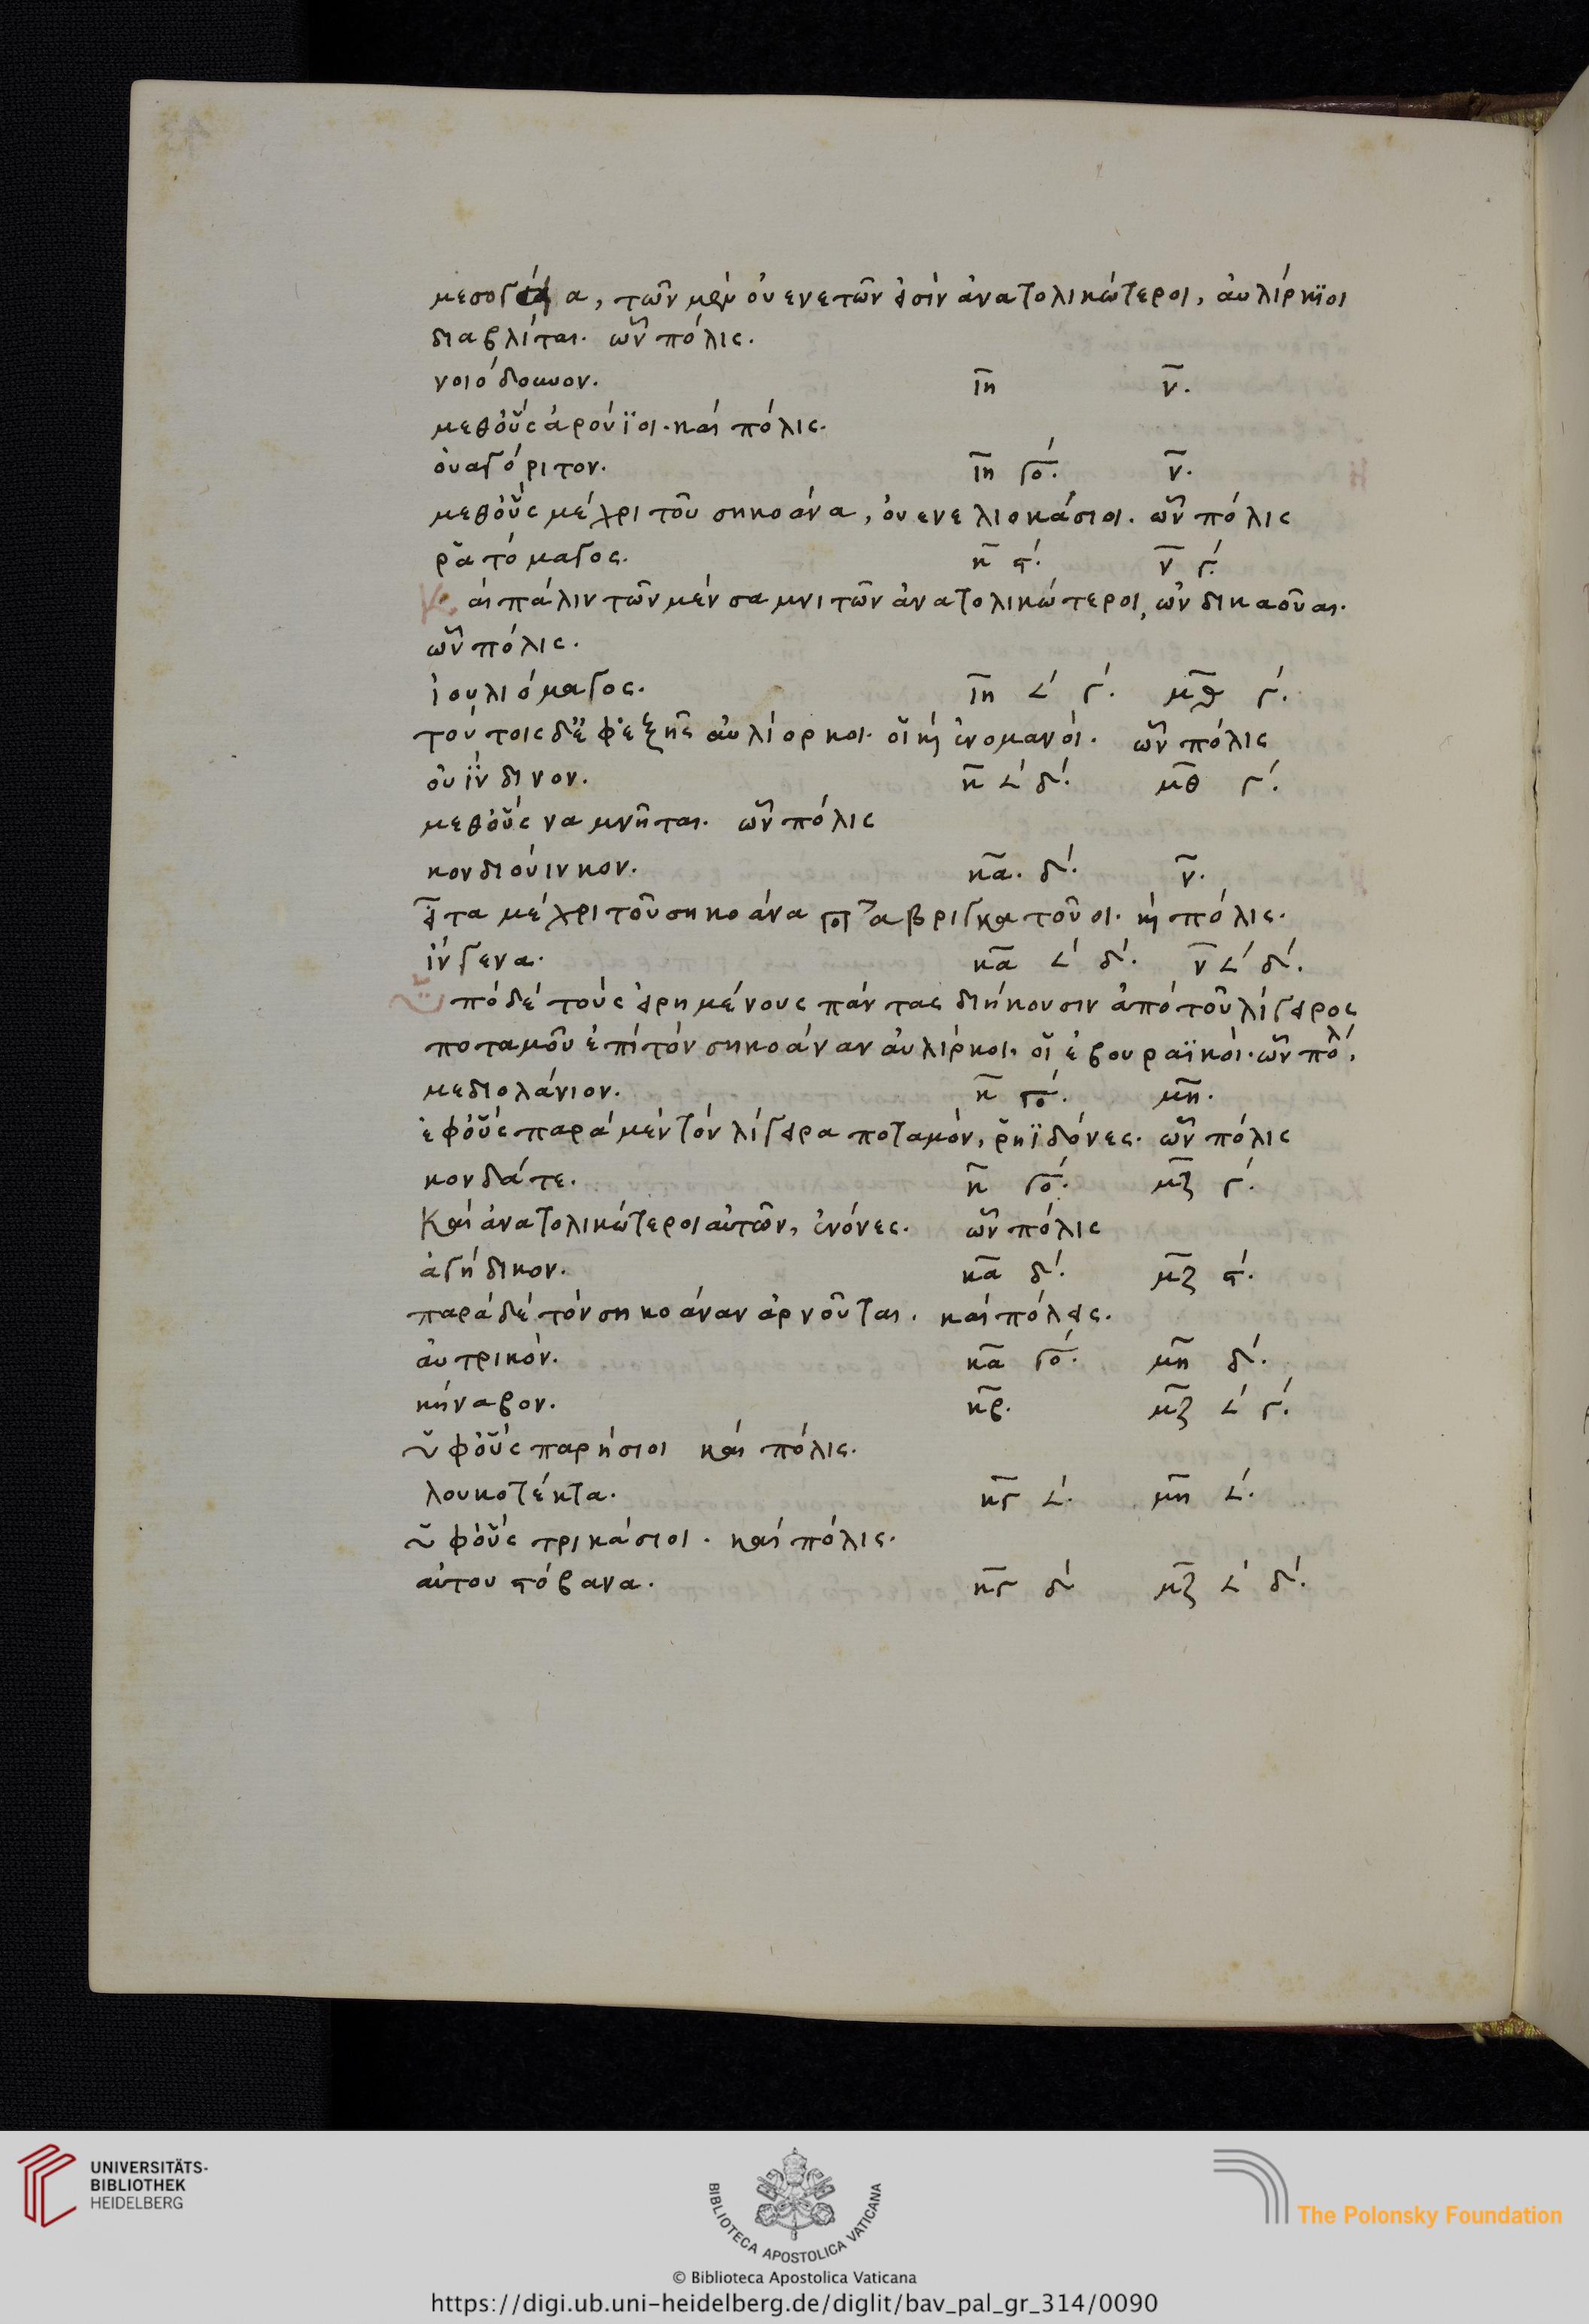 μεσογεια, τῶν μὲν οὐενετῶν εἰσὶν ἀνατολικώτεροι, αὐλίρκϊοι
διαβλίται. ὧν πόλις.
νοιόδουνον. ιη ν.
μεθ' οὓς ἀρούϊοι. καὶ πόλις.
οὐαγόριτον. ιη γο. ν.
μεθ' οὓς μέχρι τοῦ σηκοάνα, οὐενελιοκάσιοι. ὧν πόλις
ῥατόμαγος. κ ϛ'. ν γ'.
Καὶ πάλιν τῶν μὲν σαμνιτῶν ἀνατολικώτεροι, ὠνδικαοῦαι.
ὧν πόλις.
ἰουλιόμαγος. ιη 𐅵' γ'. μθ γ'.
τούτοις δ' ἐφεξῆς αὐλίορκοι. οἱ καὶ ἐνομανοί. ὧν πόλις
οὐΐνδινον. κ 𐅵' δ'. μθ γ'.
μεθ' οὓς ναμνῆται. ὧν πόλις
κονδιούινκον. κα. δ'. ν.
εἶτα μέχρι τοῦ σηκοάνα ποτ αβριγκατοῦοι. καὶ πόλις.
ἴνγενα. κα 𐅵' δ'. ν 𐅵' δ'.
Ὑπὸ δὲ τοὺς εἰρημένους πάντας διήκουσιν ἀπὸ τοῦ λίγειρος
ποταμοῦ ἐπὶ τὸν σηκοάναν αὐλίρκοι. οἱ ἐβουραϊκοί. ὧν πόλ.
μεδιολάνιον. κ γο. μη.
ἐφ' οὓς παρὰ μὲν τὸν λίγειρα ποταμὸν, ῥηϊδόνες. ὧν πόλις
κονδάτε. κ γο. μζ γ'.
Καὶ ἀνατολικώτεροι αὐτῶν, ἐνόνες. ὧν πόλις
ἀγήδικον. κα δ'. μζ ϛ'.
παρὰ δὲ τὸν σηκοάναν ἀρνοῦται. καὶ πόλεις.
αὐτρικόν. κα γο. μη δ'.
κήναβον. κβ. μζ 𐅵' γ'.
ὑφ' οὓς παρήσιοι καὶ πόλις.
λουκοτέκτα. κγ 𐅵'. μη 𐅵'.
ὑφ' οὓς τρικάσιοι. καὶ πόλις.
αὐτουστόβανα. κγ δ' μζ 𐅵' δ'.
UNIVERSITÄTS-
BIBLIOTHEK
HEIDELBERG
BIBLIOTECA APOSTOLICA VATICANA
The Polonsky Foundation
© Biblioteca Apostolica Vaticana
https://digi.ub.uni-heidelberg.de/diglit/bav_pal_gr_314/0090